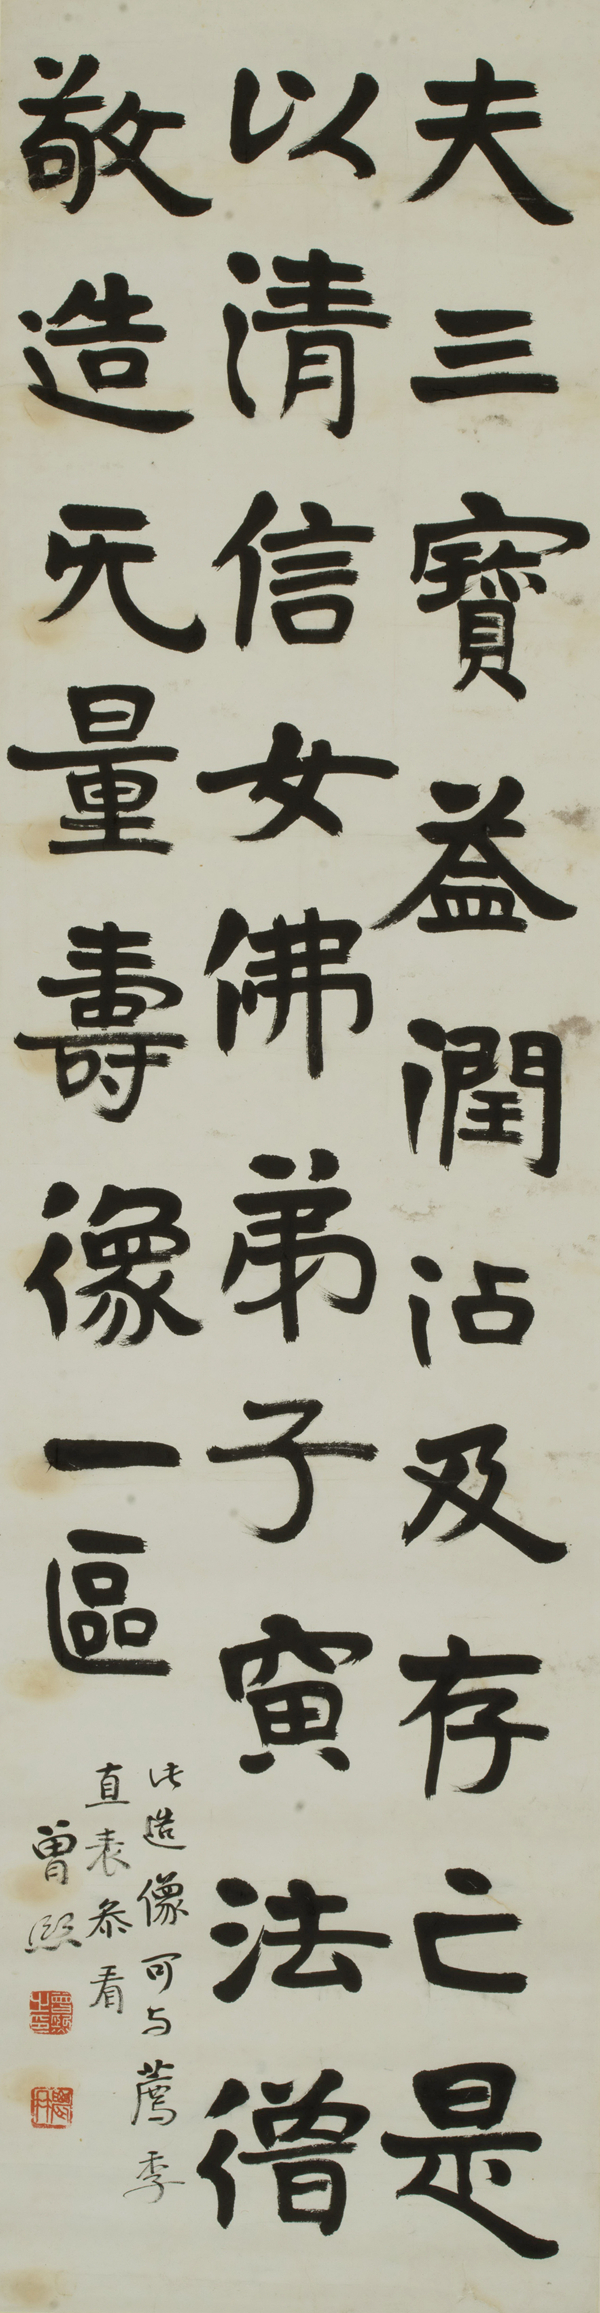 夫三寶益潤沾及存亡是
以清信女佛弟子寅法僧
敬造无量壽像一區
此造像可与薦季
直表參看
曾熙
曾熙之印
農髯